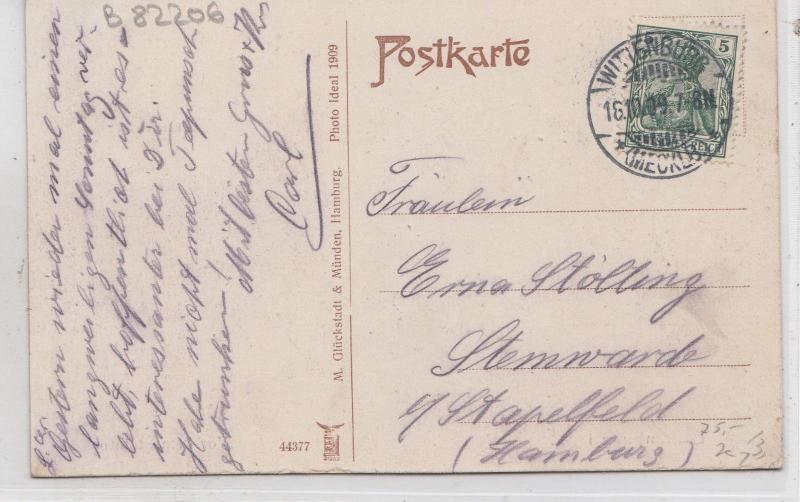 B 82206
Postkarte
5
WITTENBURG
18.10.09. 7-8 N.
(MECKLB)
Fräulein
Erna Stölting
Stemwarde
b/ Stapelfeld
(Hamburg)
75.-
L. E.
Gestern wieder mal einen
langweiligen Sonntag ver-
lebt, hoffentlich ist es
interessanter bei Dir.
Habe nicht mal
getrunken!
Mit besten Gruss
Carl
M. Glückstadt & Münden, Hamburg. Photo Ideal 1909
44377